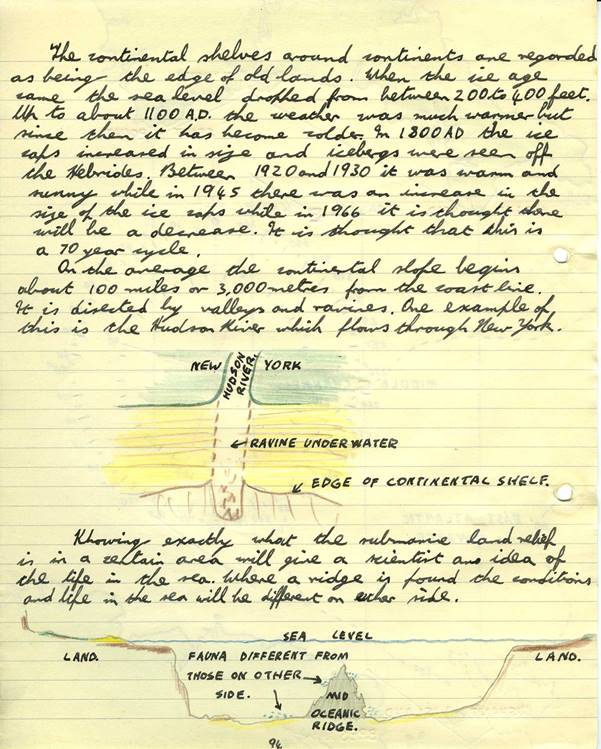 The continental shelves around continents are regarded
as being the edge of old lands. When the ice age
came the sea level dropped from between 200 to 400 feet.
Up to about 1100 A.D. the weather was much warmer but
since then it has become colder. In 1800 AD the ice
caps increased in size and icebergs were seen off
the Hebrides. Between 1920 and 1930 it was warm and
sunny while in 1945 there was an increase in the
size of the ice caps while in 1966 it is thought there
will be a decrease. It is thought that this is
a 70 year cycle.
On the average the continental slope begins
about 100 miles or 3,000 metres from the coast line.
It is disected by valleys and ravines. One example of
this is the Hudson River which flows through New York.
NEW HUDSON RIVER. YORK
RAVINE UNDERWATER
EDGE OF CONTINENTAL SHELF.
Knowing exactly what the submarine land relief
is in a certain area will give a scientist ans idea of
the life in the sea. Where a ridge is found the conditions
and life in the sea will be different on either side.
SEA LEVEL
LAND. FAUNA DIFFERENT FROM LAND.
THOSE ON OTHER
SIDE. MID
OCEANIC
RIDGE.
94